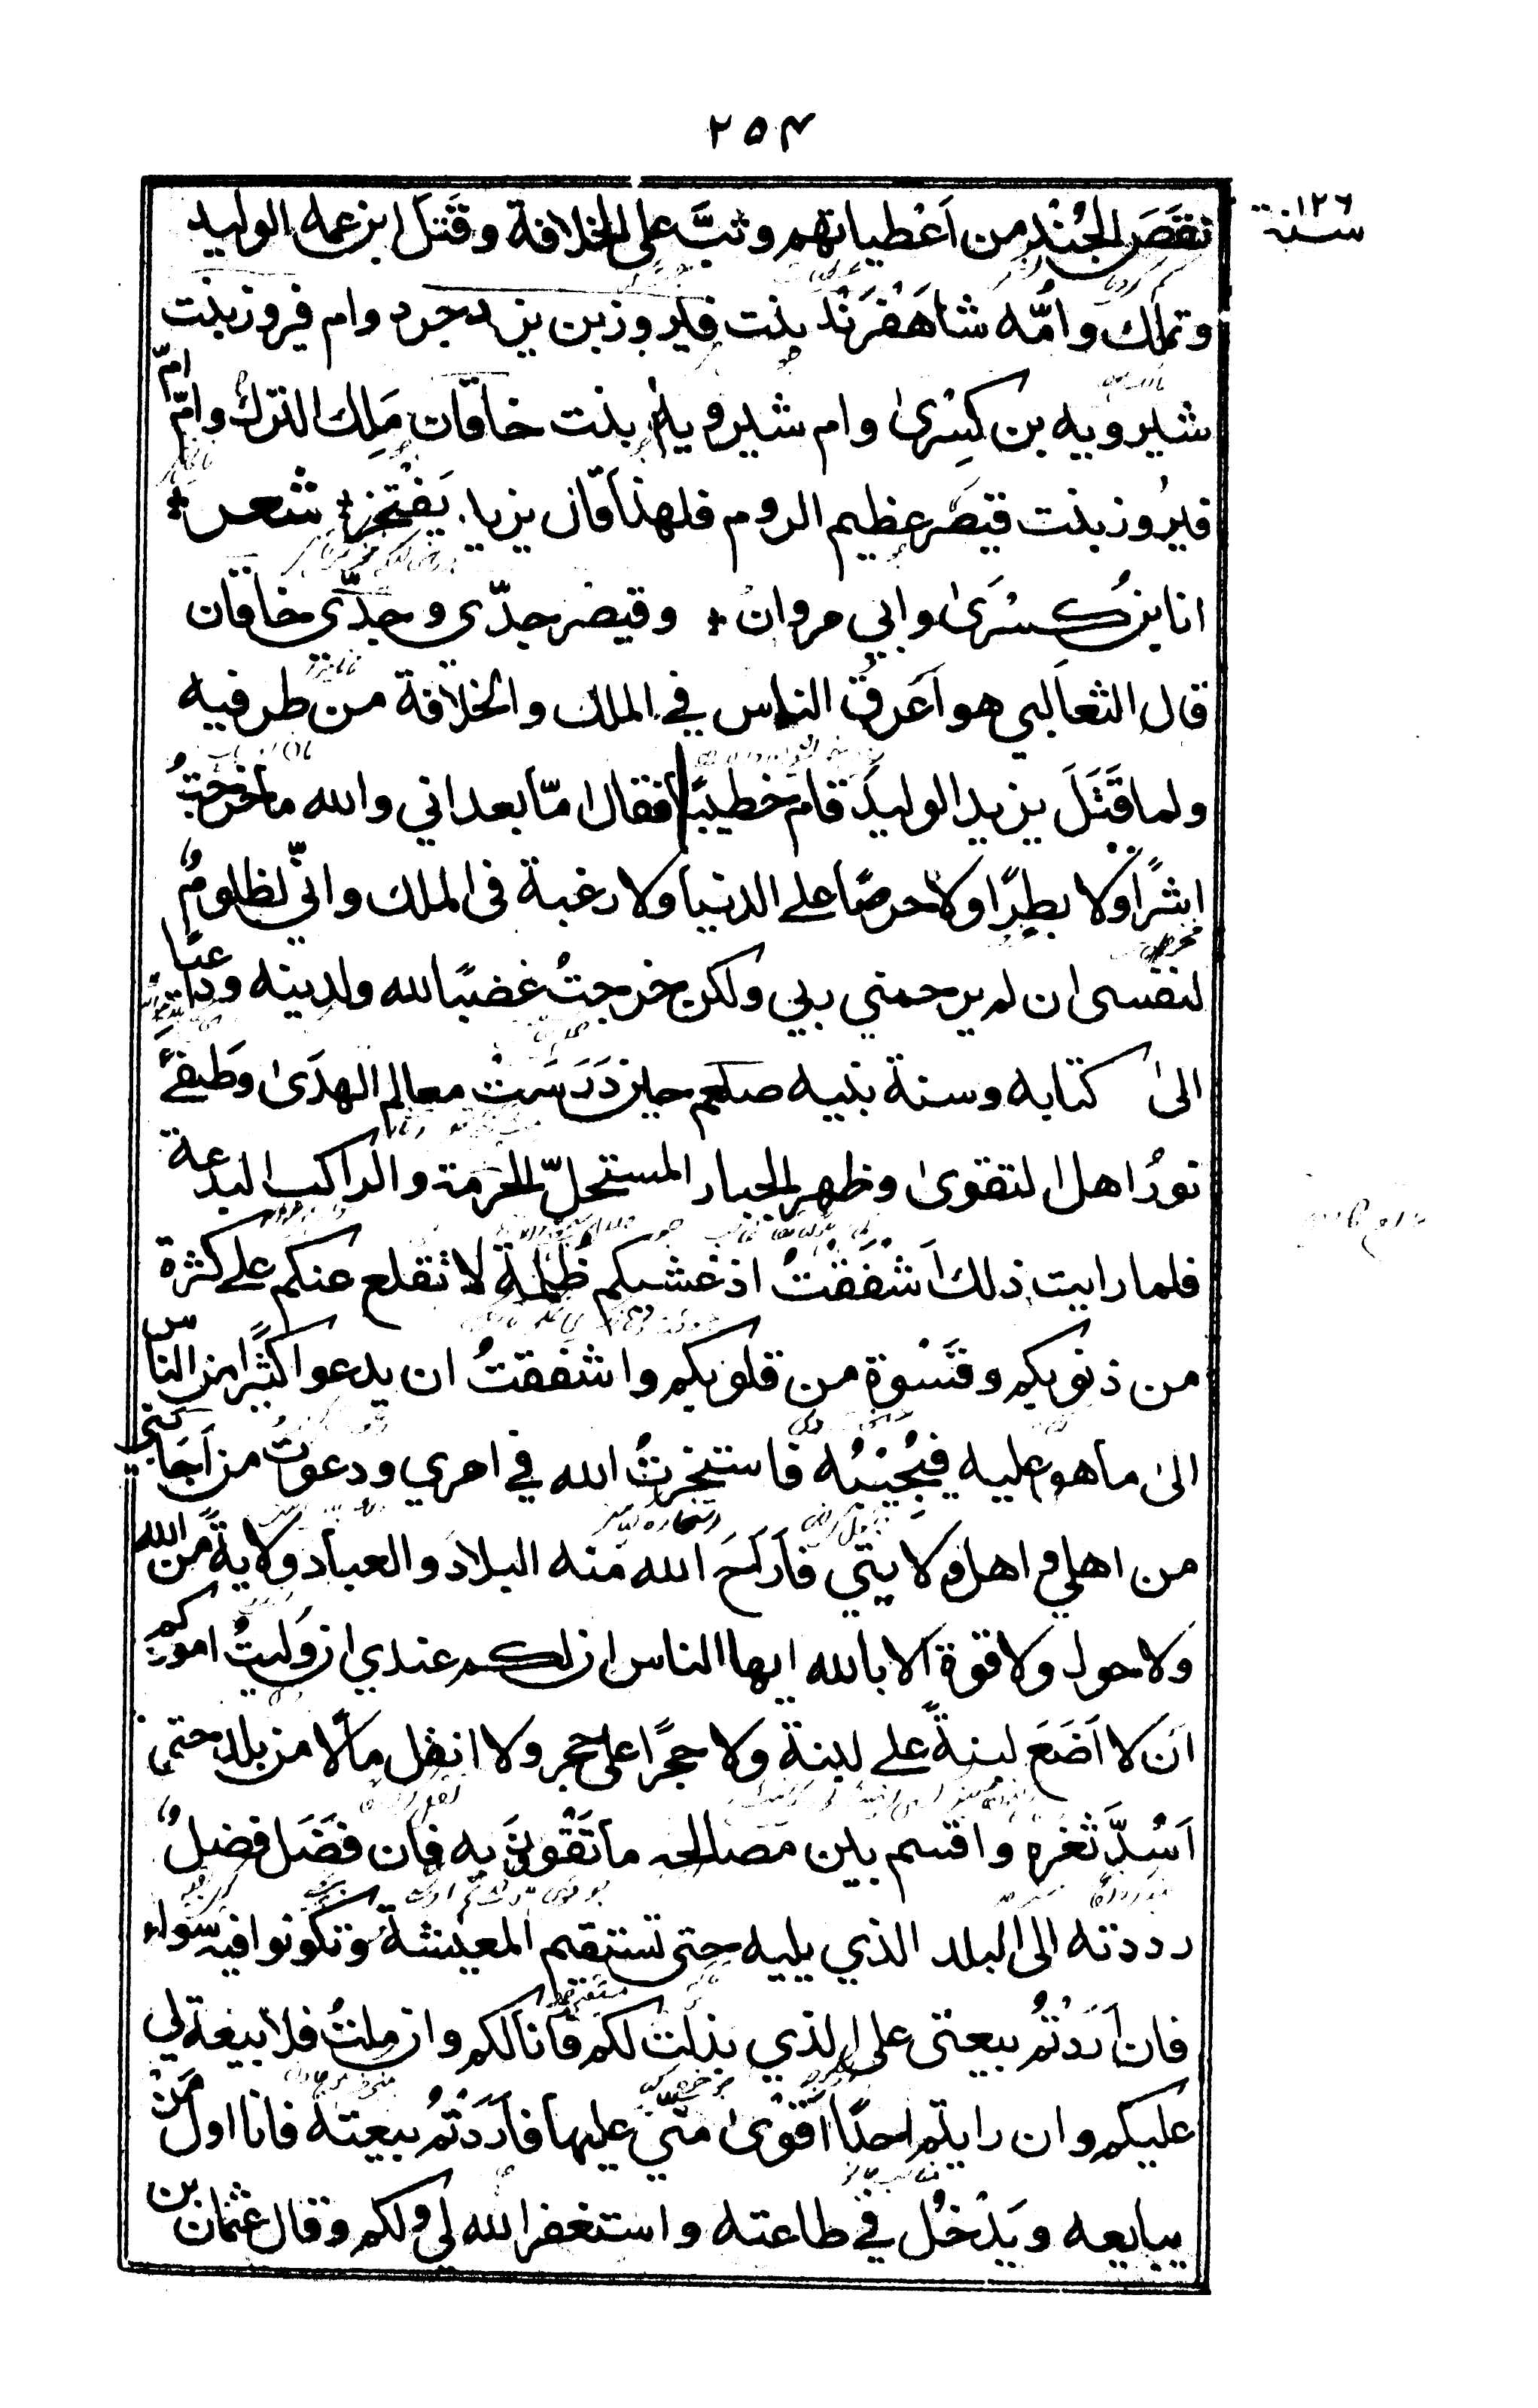 ٢٥٤
سنة ١٢٦
نقصَ الجُنْد من اَعْطياتهم وثبَّ على الخلافة وقَتَل ابن عمه الوليد
وتملك وامُّه شاهَفَرَنْد بنت فيروز بن يزدجرد وام فيروز بنت
شيرويه بن كِسْرىٰ وام شيرويه بنت خاقان مَلِك الترك وامّ امّ
فيروز بنت قيصَر عظيم الروم فلهذا قال يزيد يَفْتخر * شعر *
انا ابن كِسْرَىٰ وابي مروان * وقيصر جدّي وجدّي خاقان
قال الثعالبي هو اَعَرقُ الناس في الملك والخلافة من طرفيه
ولما قَتَلَ يزيد الوليدَ قام خطيبًا فقال امّا بعد اني والله ما خرجتُ
اشرًا ولا بطِرًا ولا حرصًا على الدنيا ولا رغبة فى الملك وانّي لظلومٌ
لنفسى ان لم يرحمني ربي ولكن خرجتُ غضبًا لله ولدينه وداعيًا
الىٰ كتابه وسنة نبيه صلعم حين دَرَسَتْ معالم الهدَىٰ وَطَفِئَ
نورُ اهل التقوىٰ وظهر الجبار المستحلّ الحرمة والراكب البدعة
فلما رايت ذلك اَشْفَقْتُ اذ غشيكم ظُلمة لا تقلع عنكم على كثرة
من ذنوبكم وقَسْوة من قلوبكم واشفقتُ ان يدعو اكثيرًا من الناس
الىٰ ما هو عليه فيُجيبُه فاستخرتُ الله في امري ودعوتُ من اَجَابني
من اهلي واهل ولايتي فاَرَاحَ الله منه البلادَ والعبادَ ولايةً من الله
ولا حول ولا قوة الا بالله ايها الناس ان لكم عندي ان وَليتُ اموركم
اَن لا اَضَعَ لبنةً على لبنة ولا حجرًا على حجر ولا انقل مالًا من بلد حتى
اَسُدَّ ثغره واقسم بين مصالحه ما تَقْوون به فان فضَل فضلٌ
رددته الى البلد الذي يليه حتى تستقيم المعيشة وتكونوا فيه سواء
فان اَرَدْتُم بيعتى على الذي بذلت لكم فانا لكم وان مِلتُ فلا بيعة لي
عليكم وان رايتم احدًا اَقْوىٰ منّي عليها فاَرَدْتُم بيعته فانا اول مَنْ
يبايعه ويَدْخُل في طاعته واستغفر الله لي ولكم وقال عثمان بن